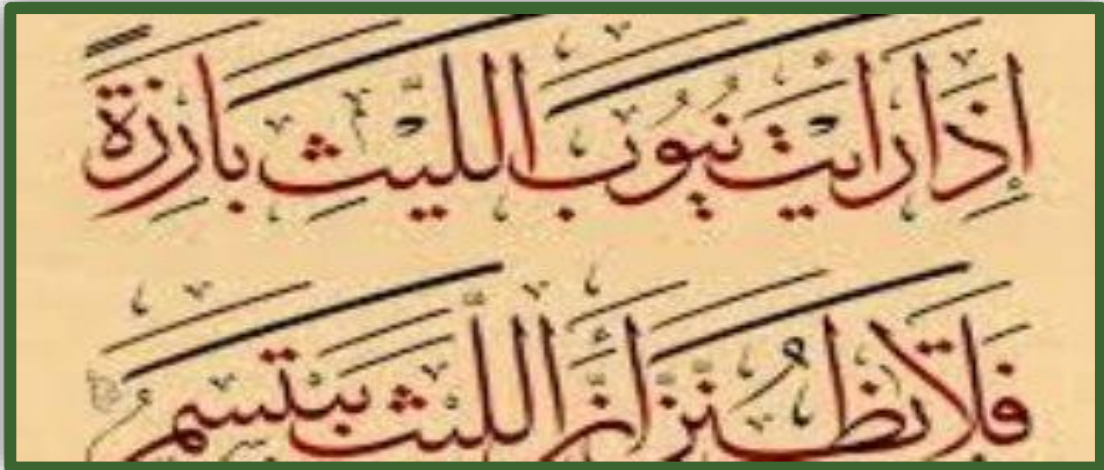 إِذَا رَأَيْتَ نُيُوبَ اللَّيْثِ بَارِزَةً
فَلَا تَظُنَّنَّ أَنَّ اللَّيْثَ يَبْتَسِمُ